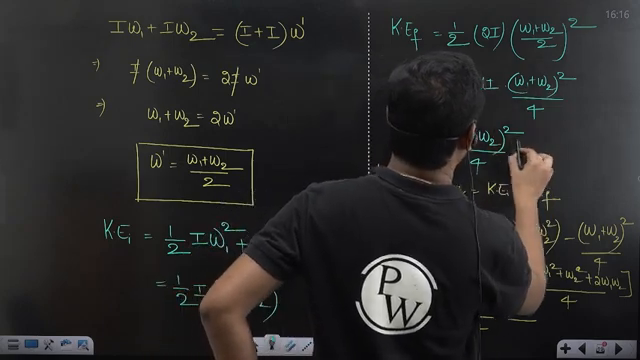 Iω₁ + Iω₂ = (I + I) ω'
⇒ I (ω₁+ω₂) = 2I ω'
⇒ ω₁ + ω₂ = 2ω'
ω' = (ω₁+ω₂)/2
K·Eᵢ = 1/2 Iω₁² +
= 1/2 I
16:16
K·E_f = 1/2 (2I) ((ω₁+ω₂)/2)²
(ω₁+ω₂)²/4
ω₂)²/4
= K·Eᵢ
ω₂²) − (ω₁+ω₂)²/4
ω₁² + ω₂² + 2ω₁ω₂]/4
PW